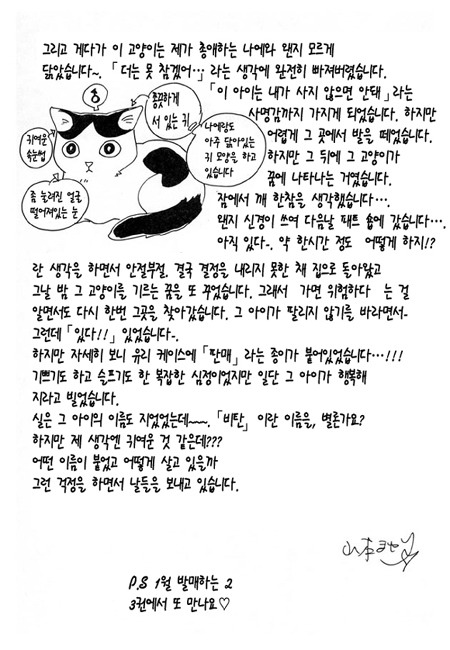 그리고 게다가 이 고양이는 제가 총애하는 나에와 왠지 모르게
닮았습니다~. 「더는 못 참겠어…」 라는 생각에 완전히 빠져버렸습니다.
「이 아이는 내가 사지 않으면 안돼」라는
사명감까지 가지게 되었습니다. 하지만
어렵게 그 곳에서 발을 떼었습니다.
하지만 그 뒤에 그 고양이가
꿈에 나타나는 거였습니다.
잠에서 깨 한참을 생각했습니다…
왠지 신경이 쓰여 다음날 패트 숍에 갔습니다…
아직 있다-. 약 한시간 정도 어떻게 하지!?
♂
쫑긋하게
서 있는 귀
귀여운
속눈썹
나에랑도
아주 닮아있는
귀 모양을 하고
있습니다
좀 눌려진 얼굴
떨어져있는 눈
란 생각을 하면서 안절부절. 결국 결정을 내리지 못한 채 집으로 돌아왔고
그날 밤 그 고양이를 기르는 꿈을 또 꾸었습니다. 그래서 가면 위험하다 는 걸
알면서도 다시 한번 그곳을 찾아갔습니다. 그 아이가 팔리지 않기를 바라면서-
그런데 「있다!!」 있었습니다-.
하지만 자세히 보니 유리 케이스에 「판매」 라는 종이가 붙어있었습니다…!!!
기쁘기도 하고 슬프기도 한 복잡한 심정이었지만 일단 그 아이가 행복해
지라고 빌었습니다.
실은 그 아이의 이름도 지었었는데~~~. 「비탄」 이란 이름을, 별론가요?
하지만 제 생각엔 귀여운 것 같은데???
어떤 이름이 붙었고 어떻게 살고 있을까
그런 걱정을 하면서 날들을 보내고 있습니다.
P.S 1월 발매하는 2
3권에서 또 만나요♡